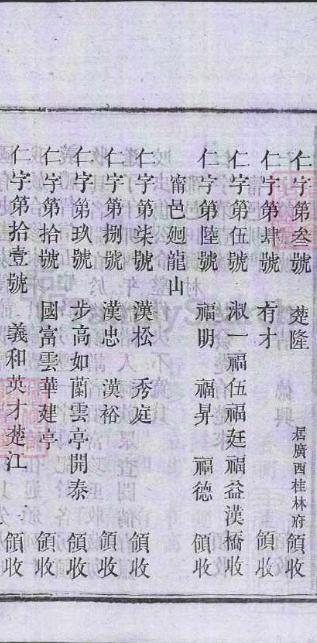 仁字第叄號 楚隆 居廣西桂林府 領收
仁字第肆號 有才 領收
仁字第伍號 淑一福伍福廷福益漢橋收
仁字第陸號 福明 福昇 福德 領收
甯邑廻龍山
仁字第柒號 漢松 秀庭 領收
仁字第捌號 漢忠 漢裕 領收
仁字第玖號 步高如蘭雲亭開泰 領收
仁字第拾號 國富雲華建亭 領收
仁字第拾壹號 義和英才楚江 領收